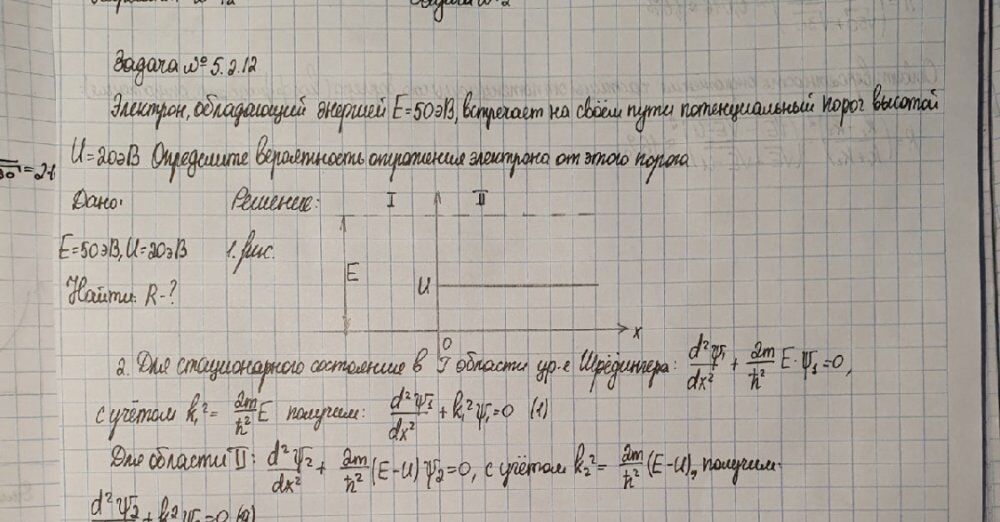 Задача №5.2.12
Электрон, обладающий энергией E=50эВ, встречает на своём пути потенциальный порог высотой
U=20эВ Определите вероятность отражения электрона от этого порога
=21
Дано: Решение: I II
E=50эВ, U=20эВ 1. рис. E U
Найти: R-?
0 x
2. Для стационарного состояние в I области ур-е Шрёдингера: d²Ψ₁/dx² + 2m/ħ² E·Ψ₁=0,
с учётом k₁² = 2m/ħ² E получим: d²Ψ₁/dx² + k₁²Ψ₁=0 (1)
Для области II: d²Ψ₂/dx² + 2m/ħ² (E-U)Ψ₂=0, с учётом k₂² = 2m/ħ² (E-U), получим:
d²Ψ₂ + k₂² =0 (2)